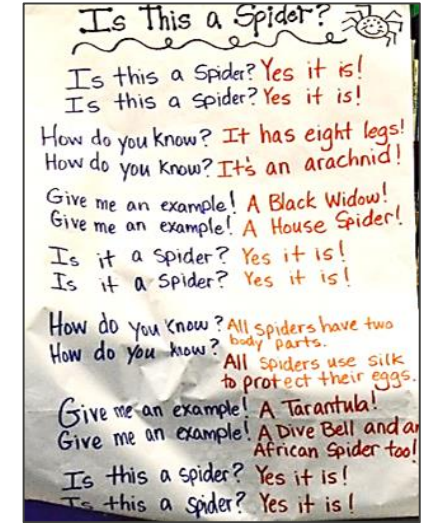 Is This a Spider?
Is this a Spider? Yes it is!
Is this a Spider? Yes it is!
How do you know? It has eight legs!
How do you know? It's an arachnid!
Give me an example! A Black Widow!
Give me an example! A House Spider!
Is it a spider? Yes it is!
Is it a spider? Yes it is!
How do you know? All spiders have two
body parts.
How do you know?
All spiders use silk
to protect their eggs.
Give me an example! A Tarantula!
Give me an example! A Dive Bell and an
African Spider too!
Is this a spider? Yes it is!
Is this a spider? Yes it is!